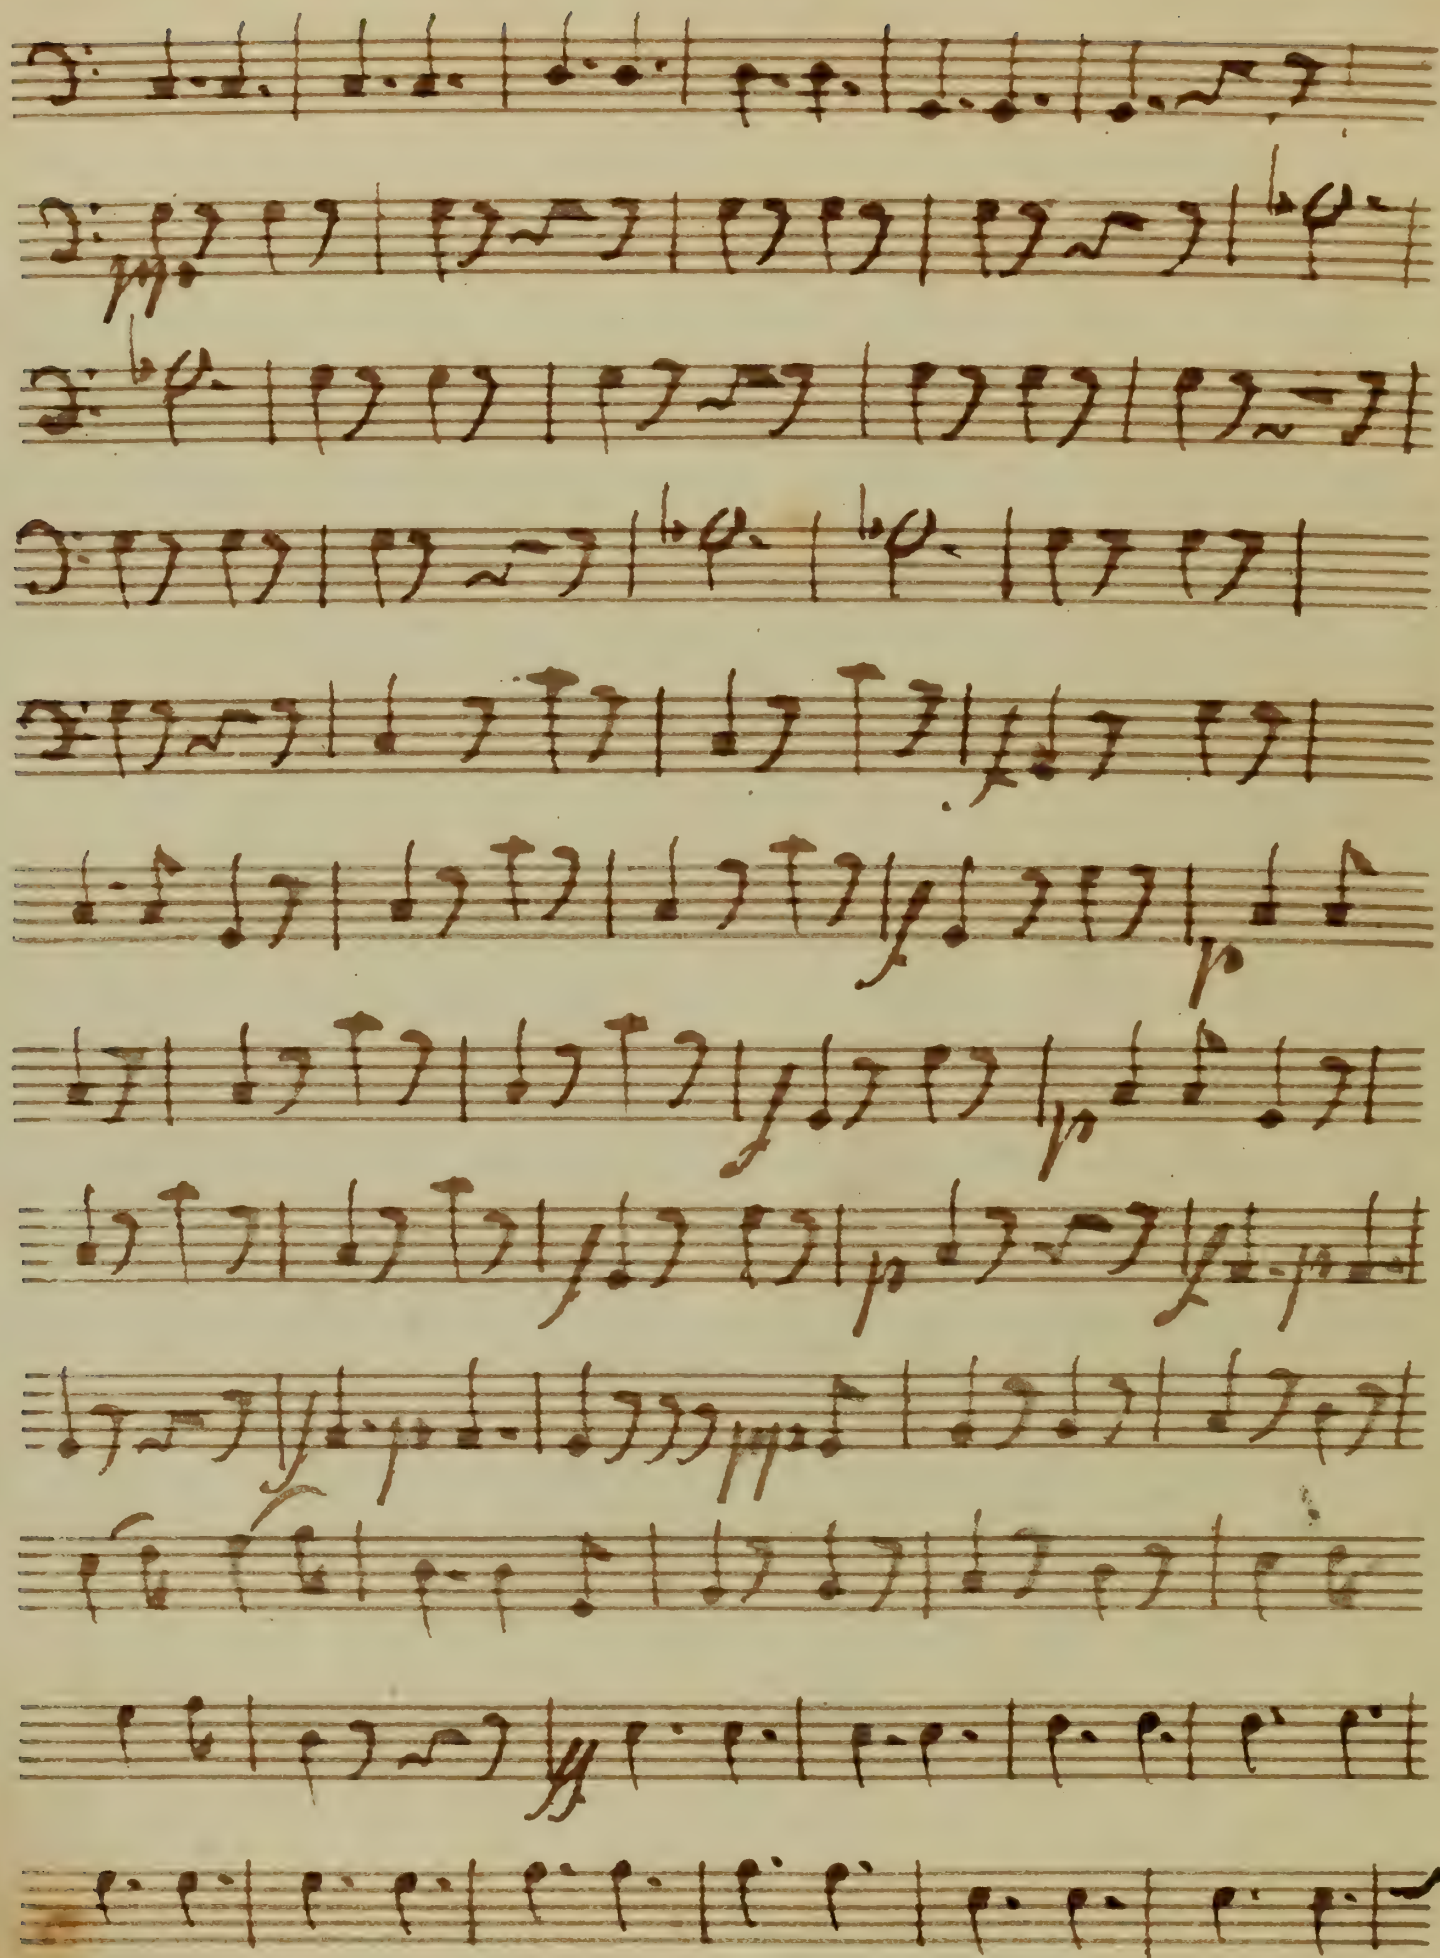 ppp
f
f p
f p
f p f p
f p pp
ff